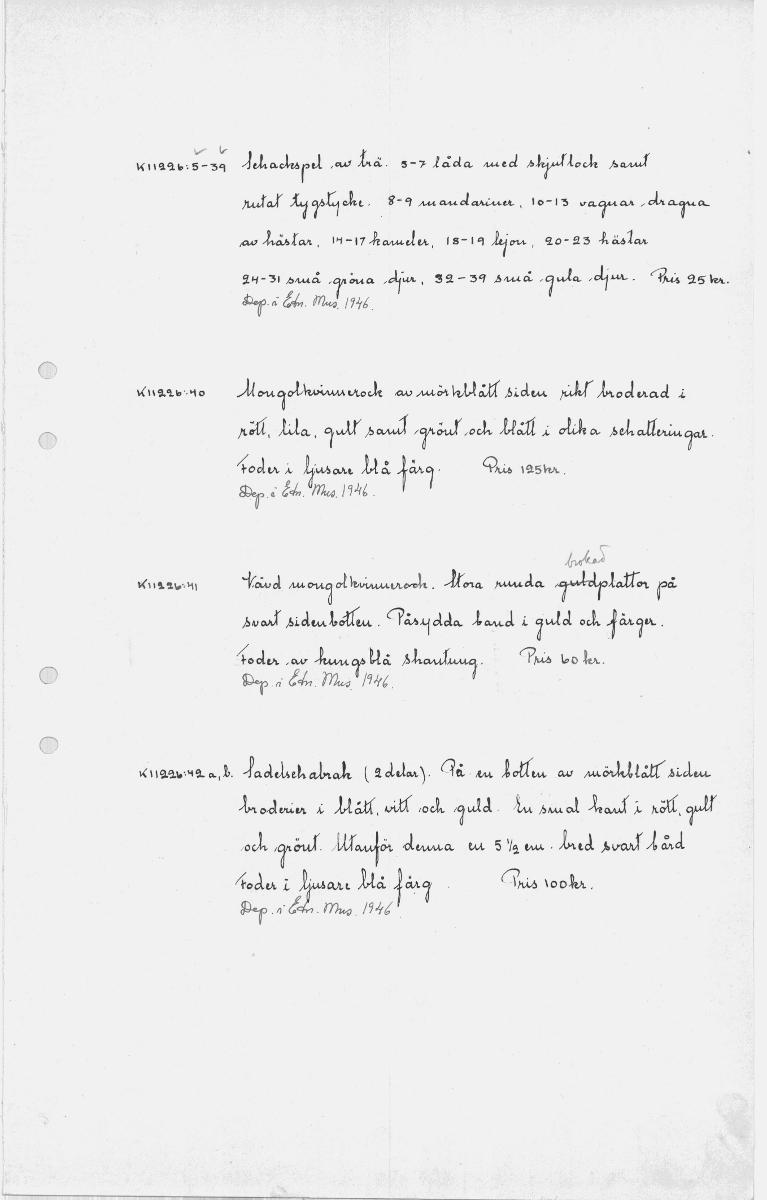 K11226:5-39 Schackspel av trä. 5-7 låda med skjutlock samt
rutat tygstycke. 8-9 mandariner, 10-13 vagnar dragna
av hästar, 14-17 kameler, 18-19 lejon, 20-23 hästar
24-31 små gröna djur, 32-39 små gula djur. Pris 25 kr.
Dep. i Etn. Mus. 1946.
K11226:40 Mongolkvinnerock av mörkblått siden rikt broderad i
rött, lila, gult samt grönt och blått i olika schatteringar.
Foder i ljusare blå färg. Pris 125 kr.
Dep. i Etn. Mus. 1946.
brokad
K11226:41 Vävd mongolkvinnerock. Stora runda guldplattor på
svart sidenbotten. Påsydda band i guld och färger.
Foder av kungsblå shantung. Pris 60 kr.
Dep. i Etn. Mus. 1946.
K11226:42 a, b. Sadelschabrak (2 delar). På en botten av mörkblått siden
broderier i blått, vitt och guld. En smal kant i rött, gult
och grönt. Utanför denna en 5 1/2 cm. bred svart bård
Foder i ljusare blå färg. Pris 100 kr.
Dep. i Etn. Mus. 1946